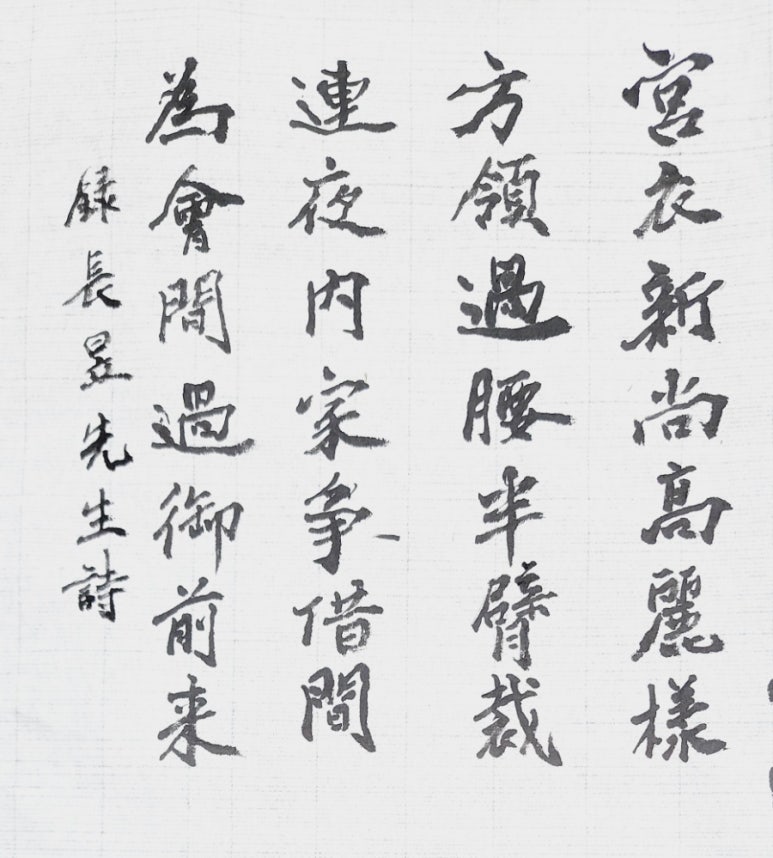 宮衣新尚高麗樣
方領過腰半臂裁
連夜内家爭借間
為會間過御前来
録長昱先生詩